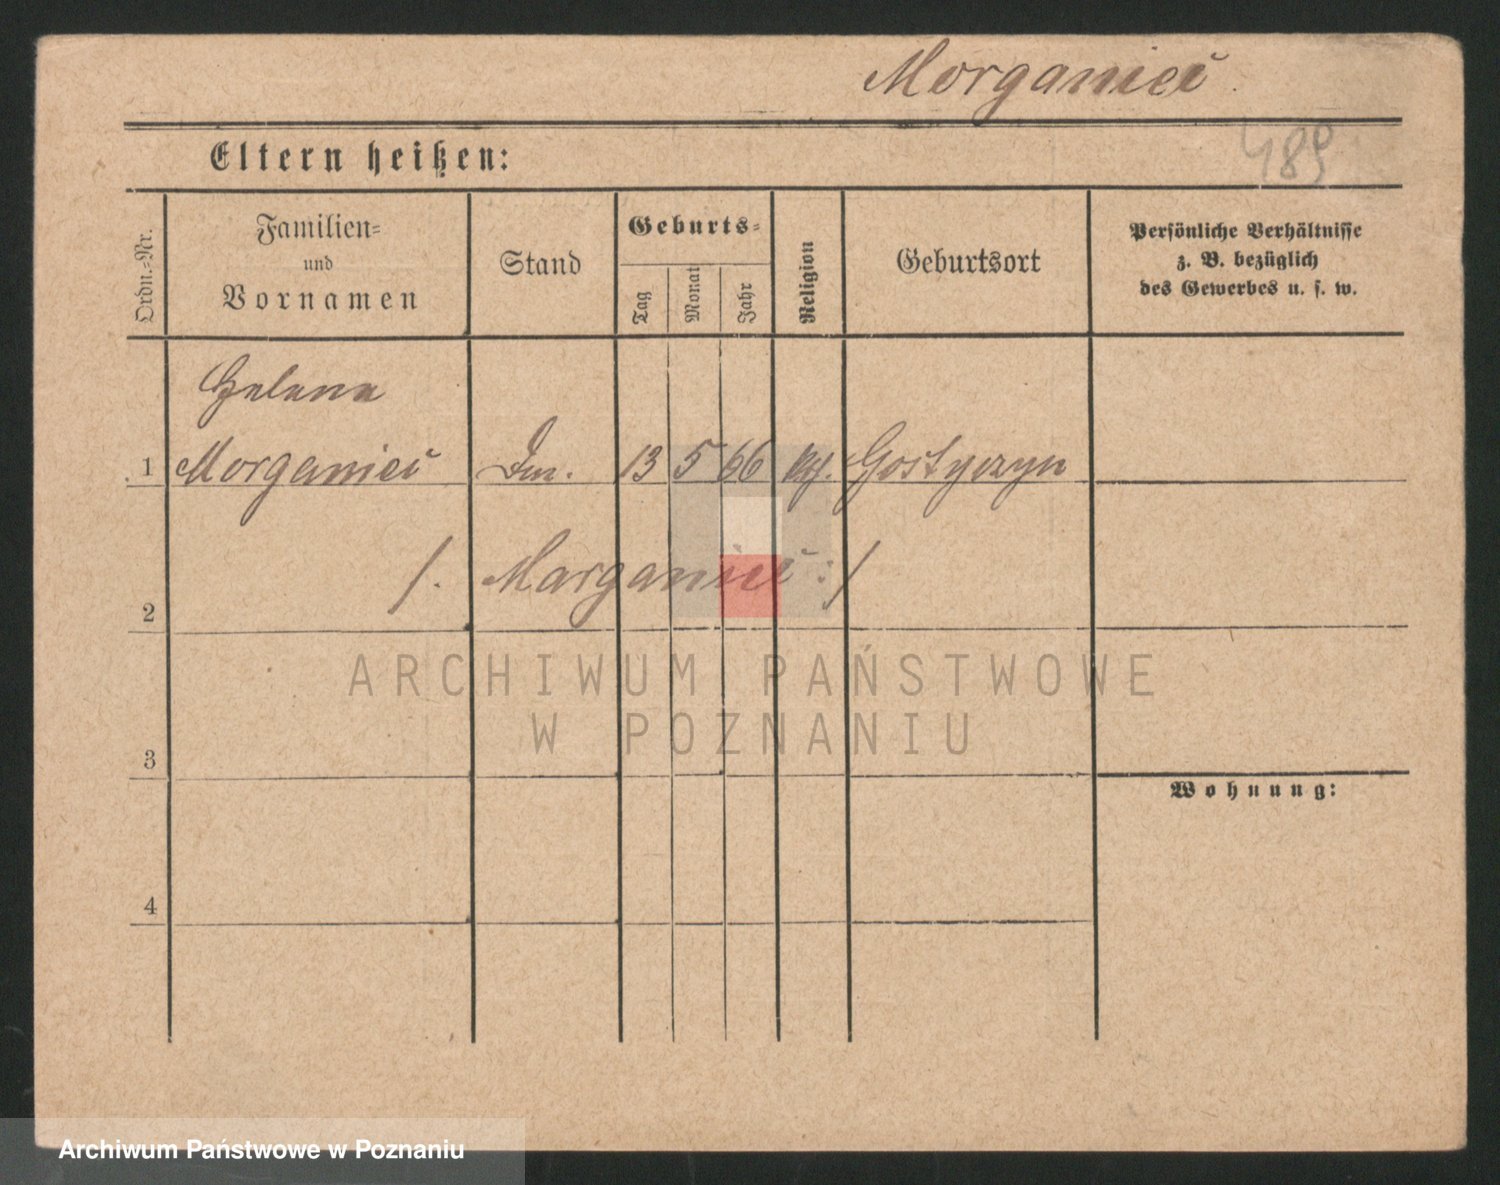 Morganieć
489
Eltern heißen:
Ordn.-Nr.
Familien-
und
Vornamen
Stand
Geburts-
Tag
Monat
Jahr
Religion
Geburtsort
Persönliche Verhältnisse
z. B. bezüglich
des Gewerbes u. s. w.
Helena
1 Morganieć 13 5 66 Gostyczyn
2 /. Marganieć :/
ARCHIWUM PAŃSTWOWE
W POZNANIU
3
Wohnung:
4
Archiwum Państwowe w Poznaniu